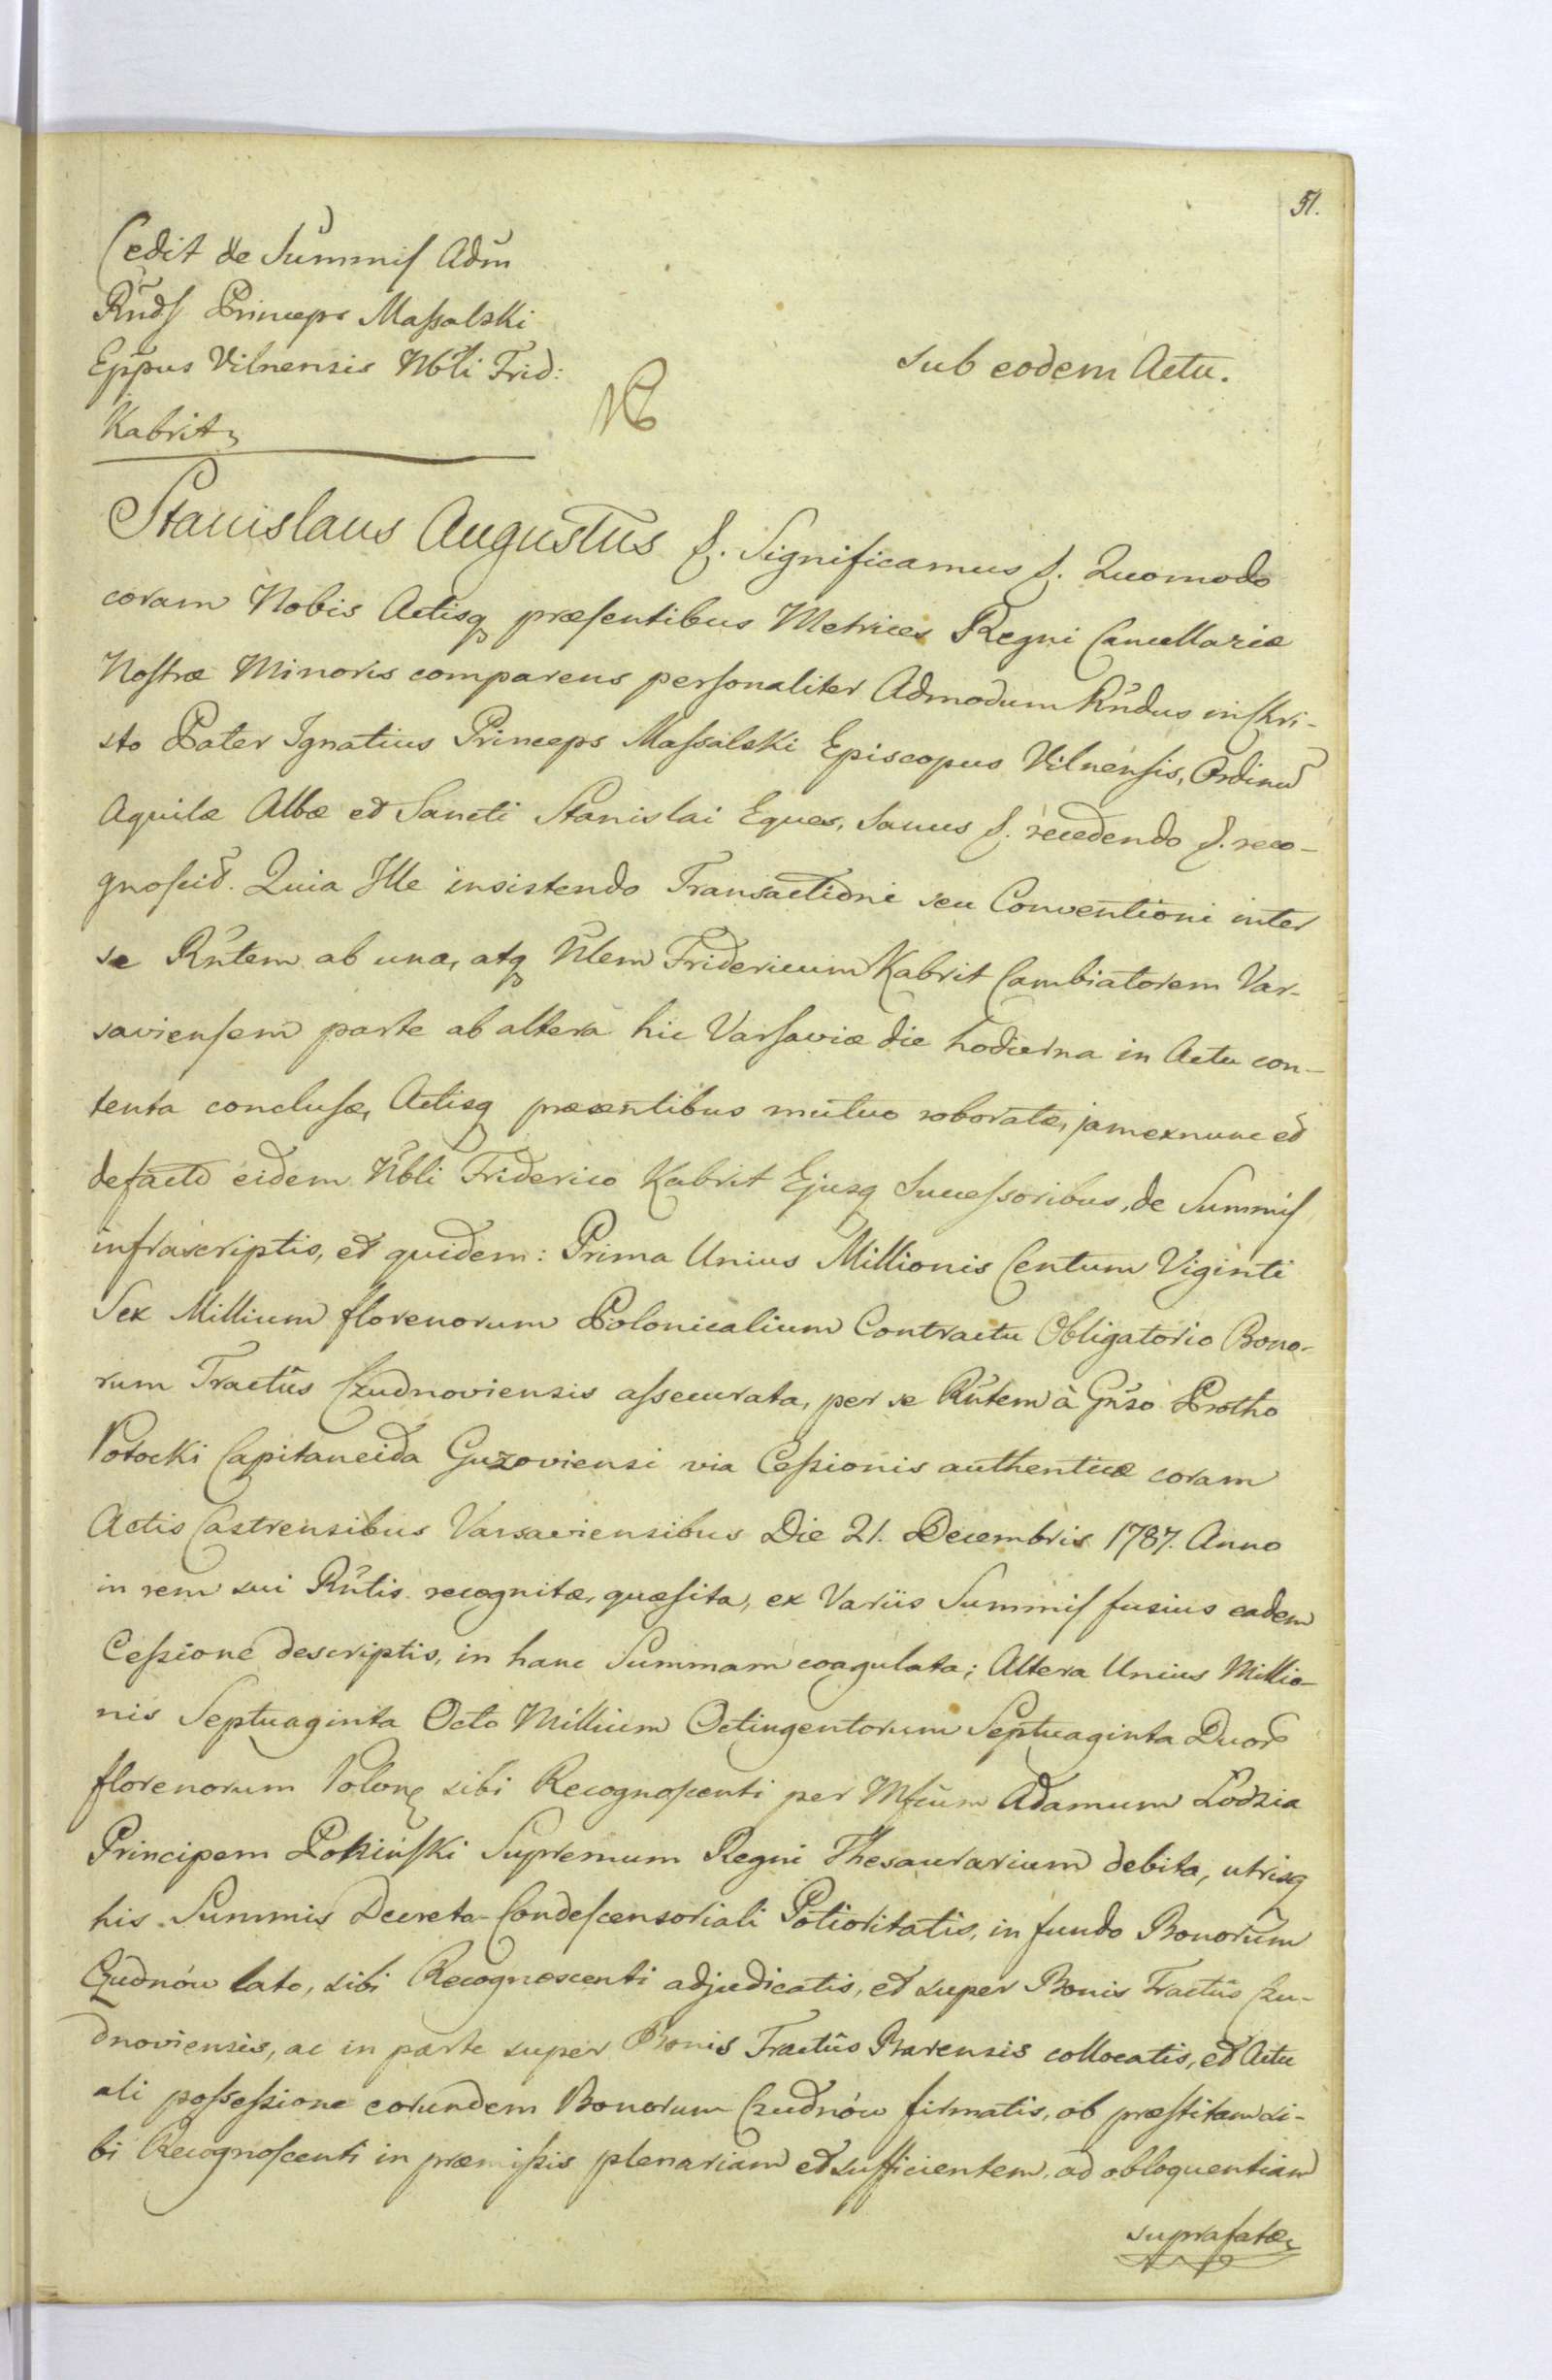 51.
Cedit de Summis Adm̃
Rñds Princeps Massalski
Epp̃us Vilnensis Nb̃li Frid:
Kabrit
NB
sub eodem Actu.
Stanislaus Augustus &. Significamus &. Quomodo
coram Nobis Actisq præsentibus Metrices Regni Cancellariæ
Nostræ Minoris comparens personaliter Admodum Rñdus in Chri-
sto Pater Ignatius Princeps Massalski Episcopus Vilnensis, Ordinũ
Aquilæ Albæ et Sancti Stanislai Eques, Sanus &. recedendo &. reco-
gnoscit. Quia Ille insistendo Transactioni seu Conventioni inter
se Rñtem ab una, atq Nlem Fridericum Kabrit Cambiatorem Var-
saviensem parte ab altera hic Varsaviæ die hodierna in Actu con-
tenta conclusæ, Actisq præsentibus mutuo roboratæ, jam exnunc et
defacto eidem Nb̃li Friderico Kabrit Ejusq Successoribus, de Summis
infrascriptis, et quidem: Prima Unius Millionis Centum Viginti
Sex Millium florenorum Polonicalium Contractu Obligatorio Bono-
rum Tractûs Czudnoviensis assecurata, per se Rñtem à Gñso Protho
Potocki Capitaneida Guzoviensi via Cessionis authenticæ coram
Actis Castrensibus Varsaviensibus Die 21. Decembris 1787. Anno
in rem sui Rñtis recognitæ, quæsita, ex Variis Summis fusius eadem
Cessione descriptis, in hanc Summam coagulata; Altera Unius Millio-
nis Septuaginta Octo Millium Octingentorum Septuaginta Duor̃
florenorum Polon sibi Recognoscenti per Mfcum Adamum Lodzia
Principem Poniński Supremum Regni Thesaurarium debita, utrisq
his Summis Decreto Condescensoriali Potioritatis, in fundo Bonorum
Czudnów lato, sibi Recognoscenti adjudicatis, et super Bonis Tractûs Czu-
dnoviensis, ac in parte super Bonis Tractûs Barensis collocatis, et Actu
ali possessione eorundem Bonorum Czudnów firmatis, ob præstitam si-
bi Recognoscenti in præmissis plenariam et sufficientem, ad obloquentiam
suprafatæ